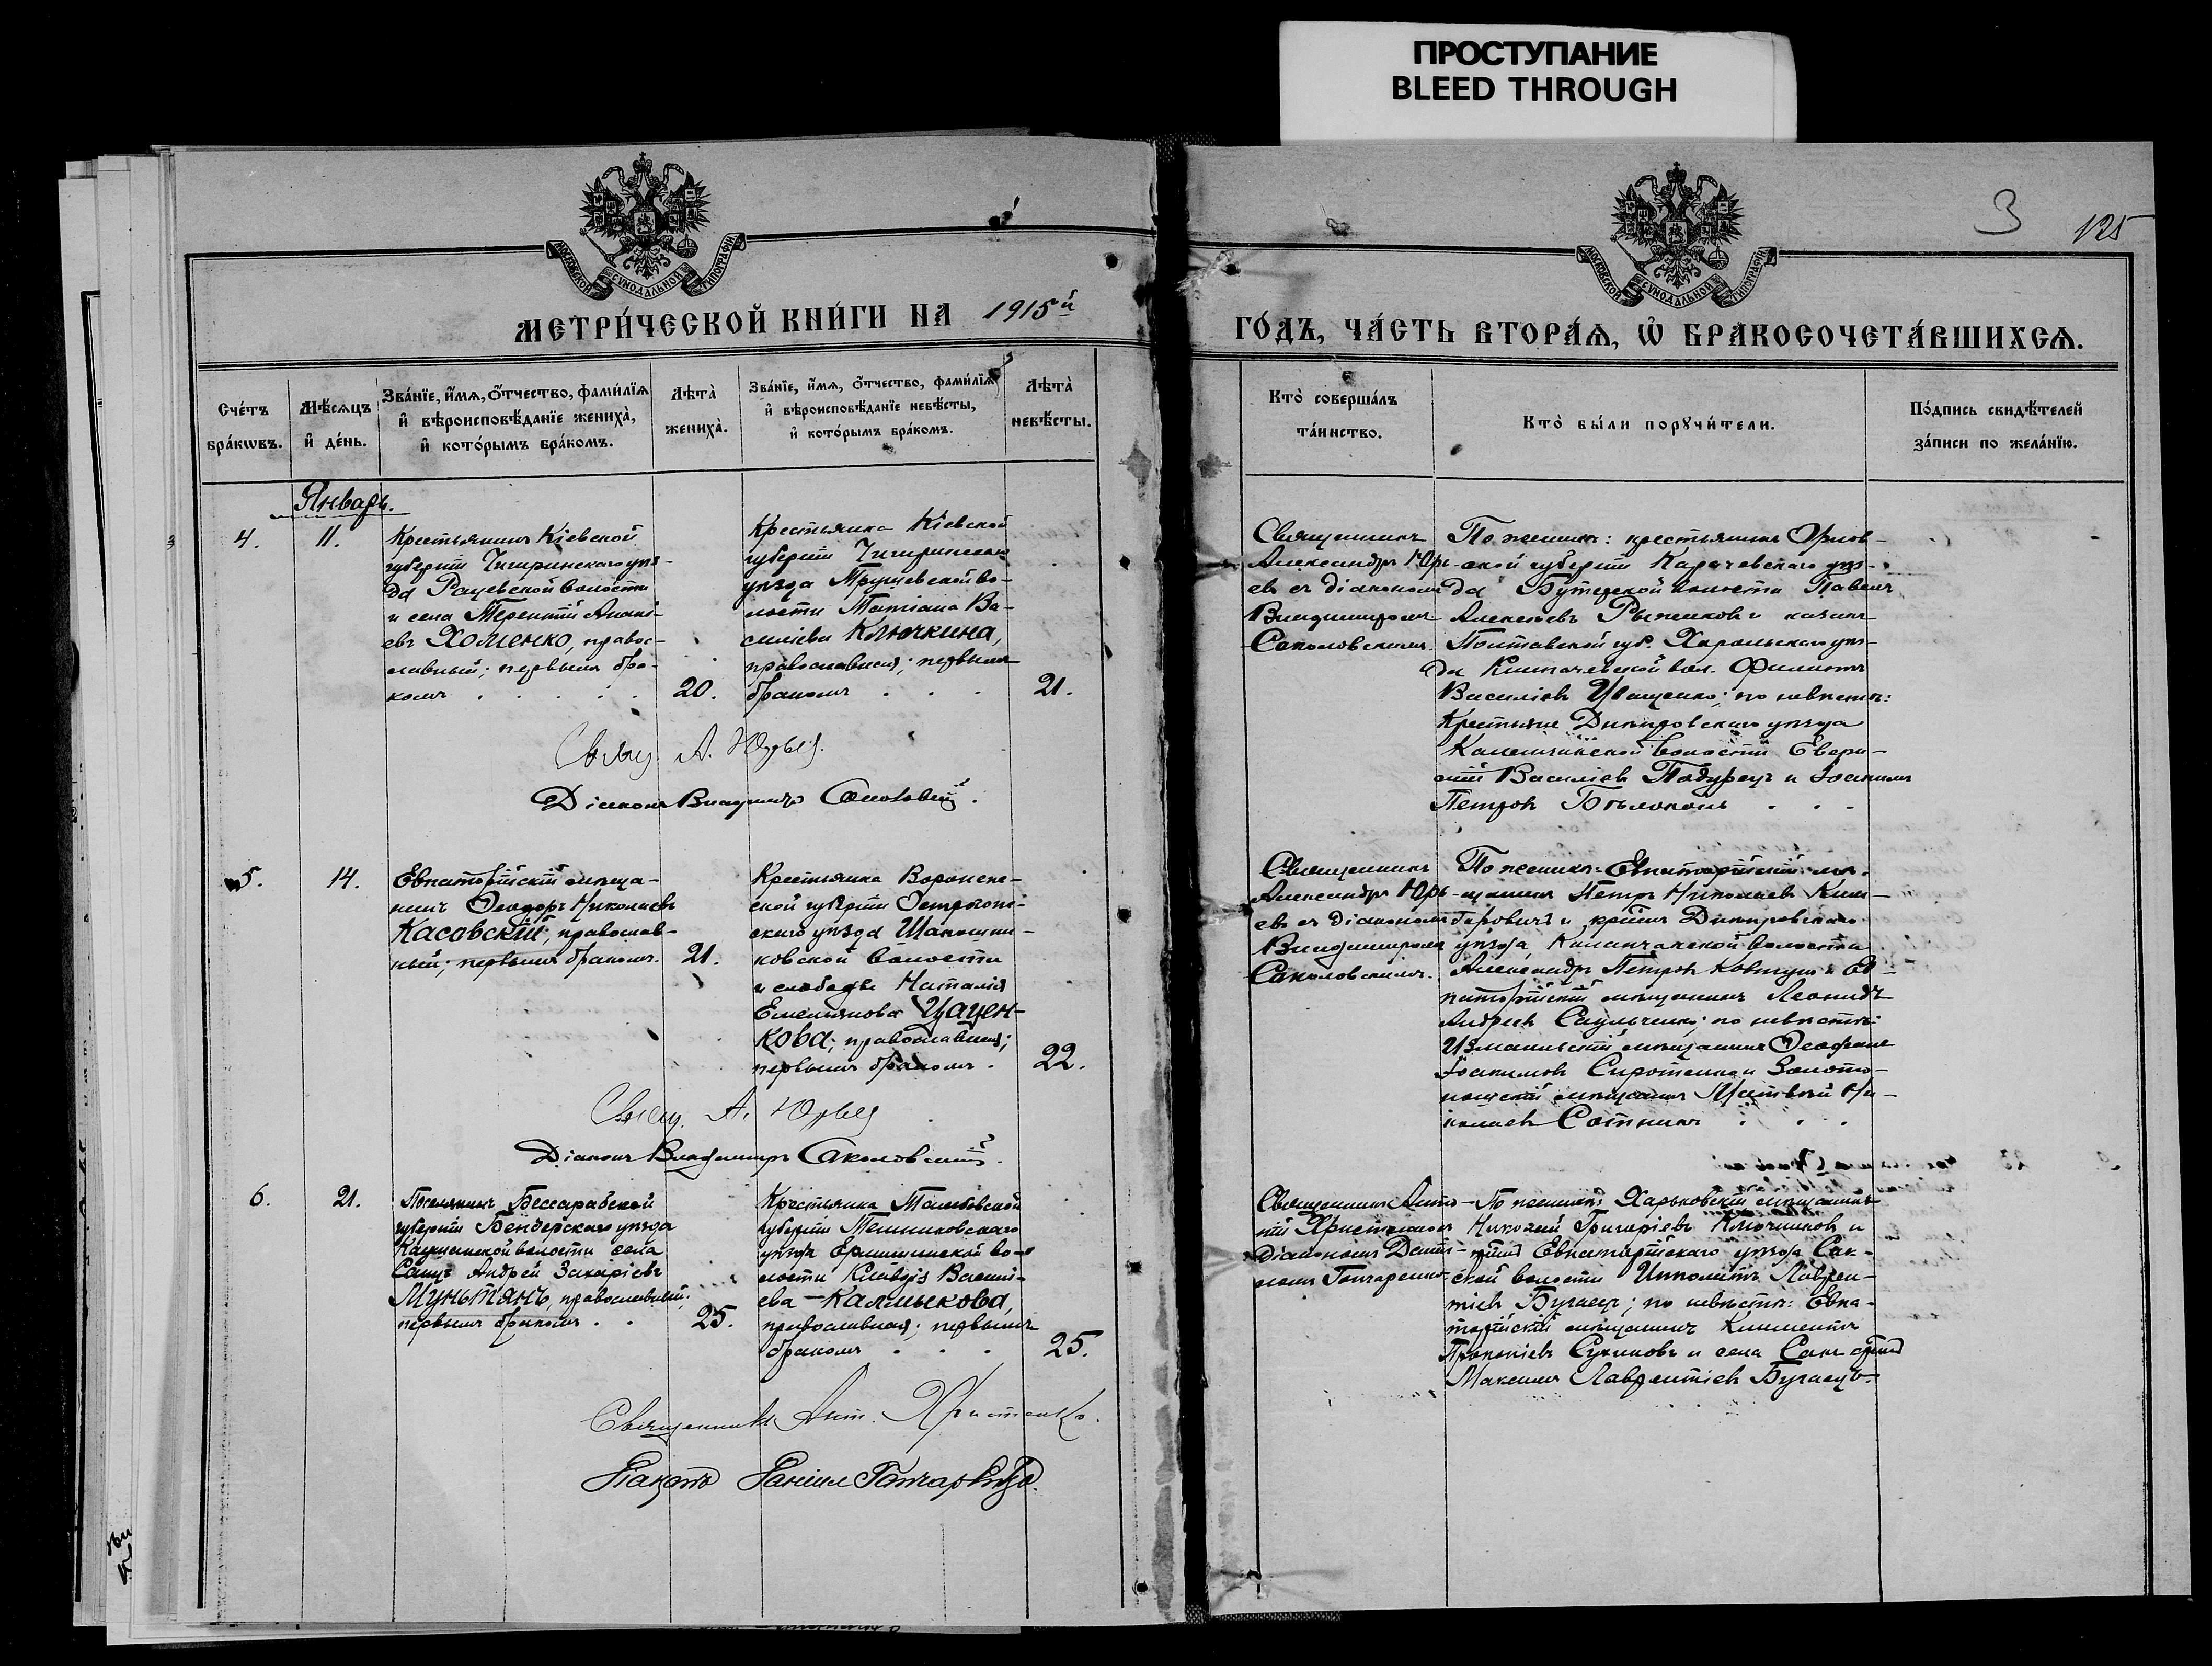 ПРОСТУПАНИЕ
BLEED THROUGH
3
125
МОСКОВСКОЙ СѴНОДАЛЬНОЙ ТИПОГРАФІИ
МОСКОВСКОЙ СѴНОДАЛЬНОЙ ТИПОГРАФІИ
МЕТРИ́ЧЕСКОЙ КНИ́ГИ НА 1915й
ГО́ДЪ, ЧА́СТЬ ВТОРА́Ѧ, Ѡ҆ БРАКОСОЧЕТА́ВШИХСѦ.
Сче́тъ бра́кѡвъ.
Мѣ́сѧцъ и҆ де́нь.
Зва́нїе, и҆́мѧ, ѻ҆́тчество, фами́лїѧ
и҆ вѣроисповѣ́данїе жениха̀,
и҆ кото́рымъ бра́комъ.
Лѣта̀ жениха̀.
Зва́нїе, и҆́мѧ, ѻ҆́тчество, фами́лїѧ
и҆ вѣроисповѣ́данїе невѣ́сты,
и҆ кото́рымъ бра́комъ.
Лѣта̀ невѣ́сты.
Кто̀ соверша́лъ
та́инство.
Кто̀ бы́ли порꙋчи́тели.
По́дпись свидѣ́телей
за́писи по жела́нїю.
Январь.
4.
11.
Крестьянинъ Кіевской
губерніи Чигиринскаго уѣз-
да Рацевской волости
и села Терентій Анані-
евъ Хоменко, правос-
лавный; первымъ бра-
комъ
20.
Крестьянка Кіевской
губерніи Чигиринскаго
уѣзда Трушевской во-
лости Татіана Ва-
силіева Ключкина,
православная; первымъ
бракомъ
21.
Священникъ
Александръ Юрь-
евъ съ діакономъ
Владиміромъ
Соколовскимъ.
По женихѣ: крестьянинъ Орлов-
ской губерніи Карачевскаго уѣз-
да волости Павелъ
Алексѣевъ Рыжековъ и казакъ
Полтавской губ. Хорольскаго уѣз-
да вол. Филиппъ
Василіевъ Иващенко; по невѣстѣ:
Крестьяне Днѣпровскаго уѣзда
волости
Василіевъ и Іоакимъ
Петровъ
Свящ. А. Юрьев.
Діаконъ Владиміръ Соколовскій.
5.
14.
Евпаторійскій мѣща-
нинъ Ѳеодоръ Николаевъ
Касовскій, православ-
ный; первымъ бракомъ.
21.
Крестьянка Воронеж-
ской губерніи Острогож-
скаго уѣзда
ковской волости
и слободы Наталія
Емельянова Цацен-
кова; православная;
первымъ бракомъ.
22.
Священникъ
Александръ Юрь-
евъ съ діакономъ
Владиміромъ
Соколовскимъ.
По женихѣ: Евпаторійскій мѣ-
щанинъ Петръ Николаевъ Ким-
баровичъ и кр-нинъ Днѣпровскаго
уѣзда Каланчакской волости
Александръ Петровъ Ковтунъ и Ев-
паторійскій мѣщанинъ Леонидъ
Андреевъ Саульченко; по невѣстѣ:
Измаильскій мѣщанинъ Ѳеофанъ
Іоакимовъ Сиротенко и Золото-
ношскій мѣщанинъ Ни-
колаевъ Сотникъ
Свящ. А. Юрьев
Діаконъ Владиміръ Соколовскій.
6.
21.
Поселянинъ Бессарабской
губерніи Бендерскаго уѣзда
Каушанской волости села
Андрей Захаріевъ
Мунтянъ, православный;
первымъ бракомъ
25.
Крестьянка Тамбовской
губерніи Темниковскаго
уѣзда Ермишинской во-
лости Клавдія Васили-
ева Калмыкова,
православная; первымъ
бракомъ
25.
Священникъ Анто-
ній Христенко
діакономъ Дані-
ломъ Гончаренко
По женихѣ: Харьковскій мѣщанинъ
Николай Григоріевъ Ключниковъ и
Евпаторійскаго уѣзда Сак-
ской волости Ипполитъ Лаврен-
тіевъ Бугаецъ; по невѣстѣ: Евпа-
торійскій мѣщанинъ Климентъ
Прокопіевъ Сухиновъ и села Саки
Максимъ Лаврентіевъ Бугаецъ.
Священникъ Ант. Христенко.
Діаконъ Даніил Гончаренко.